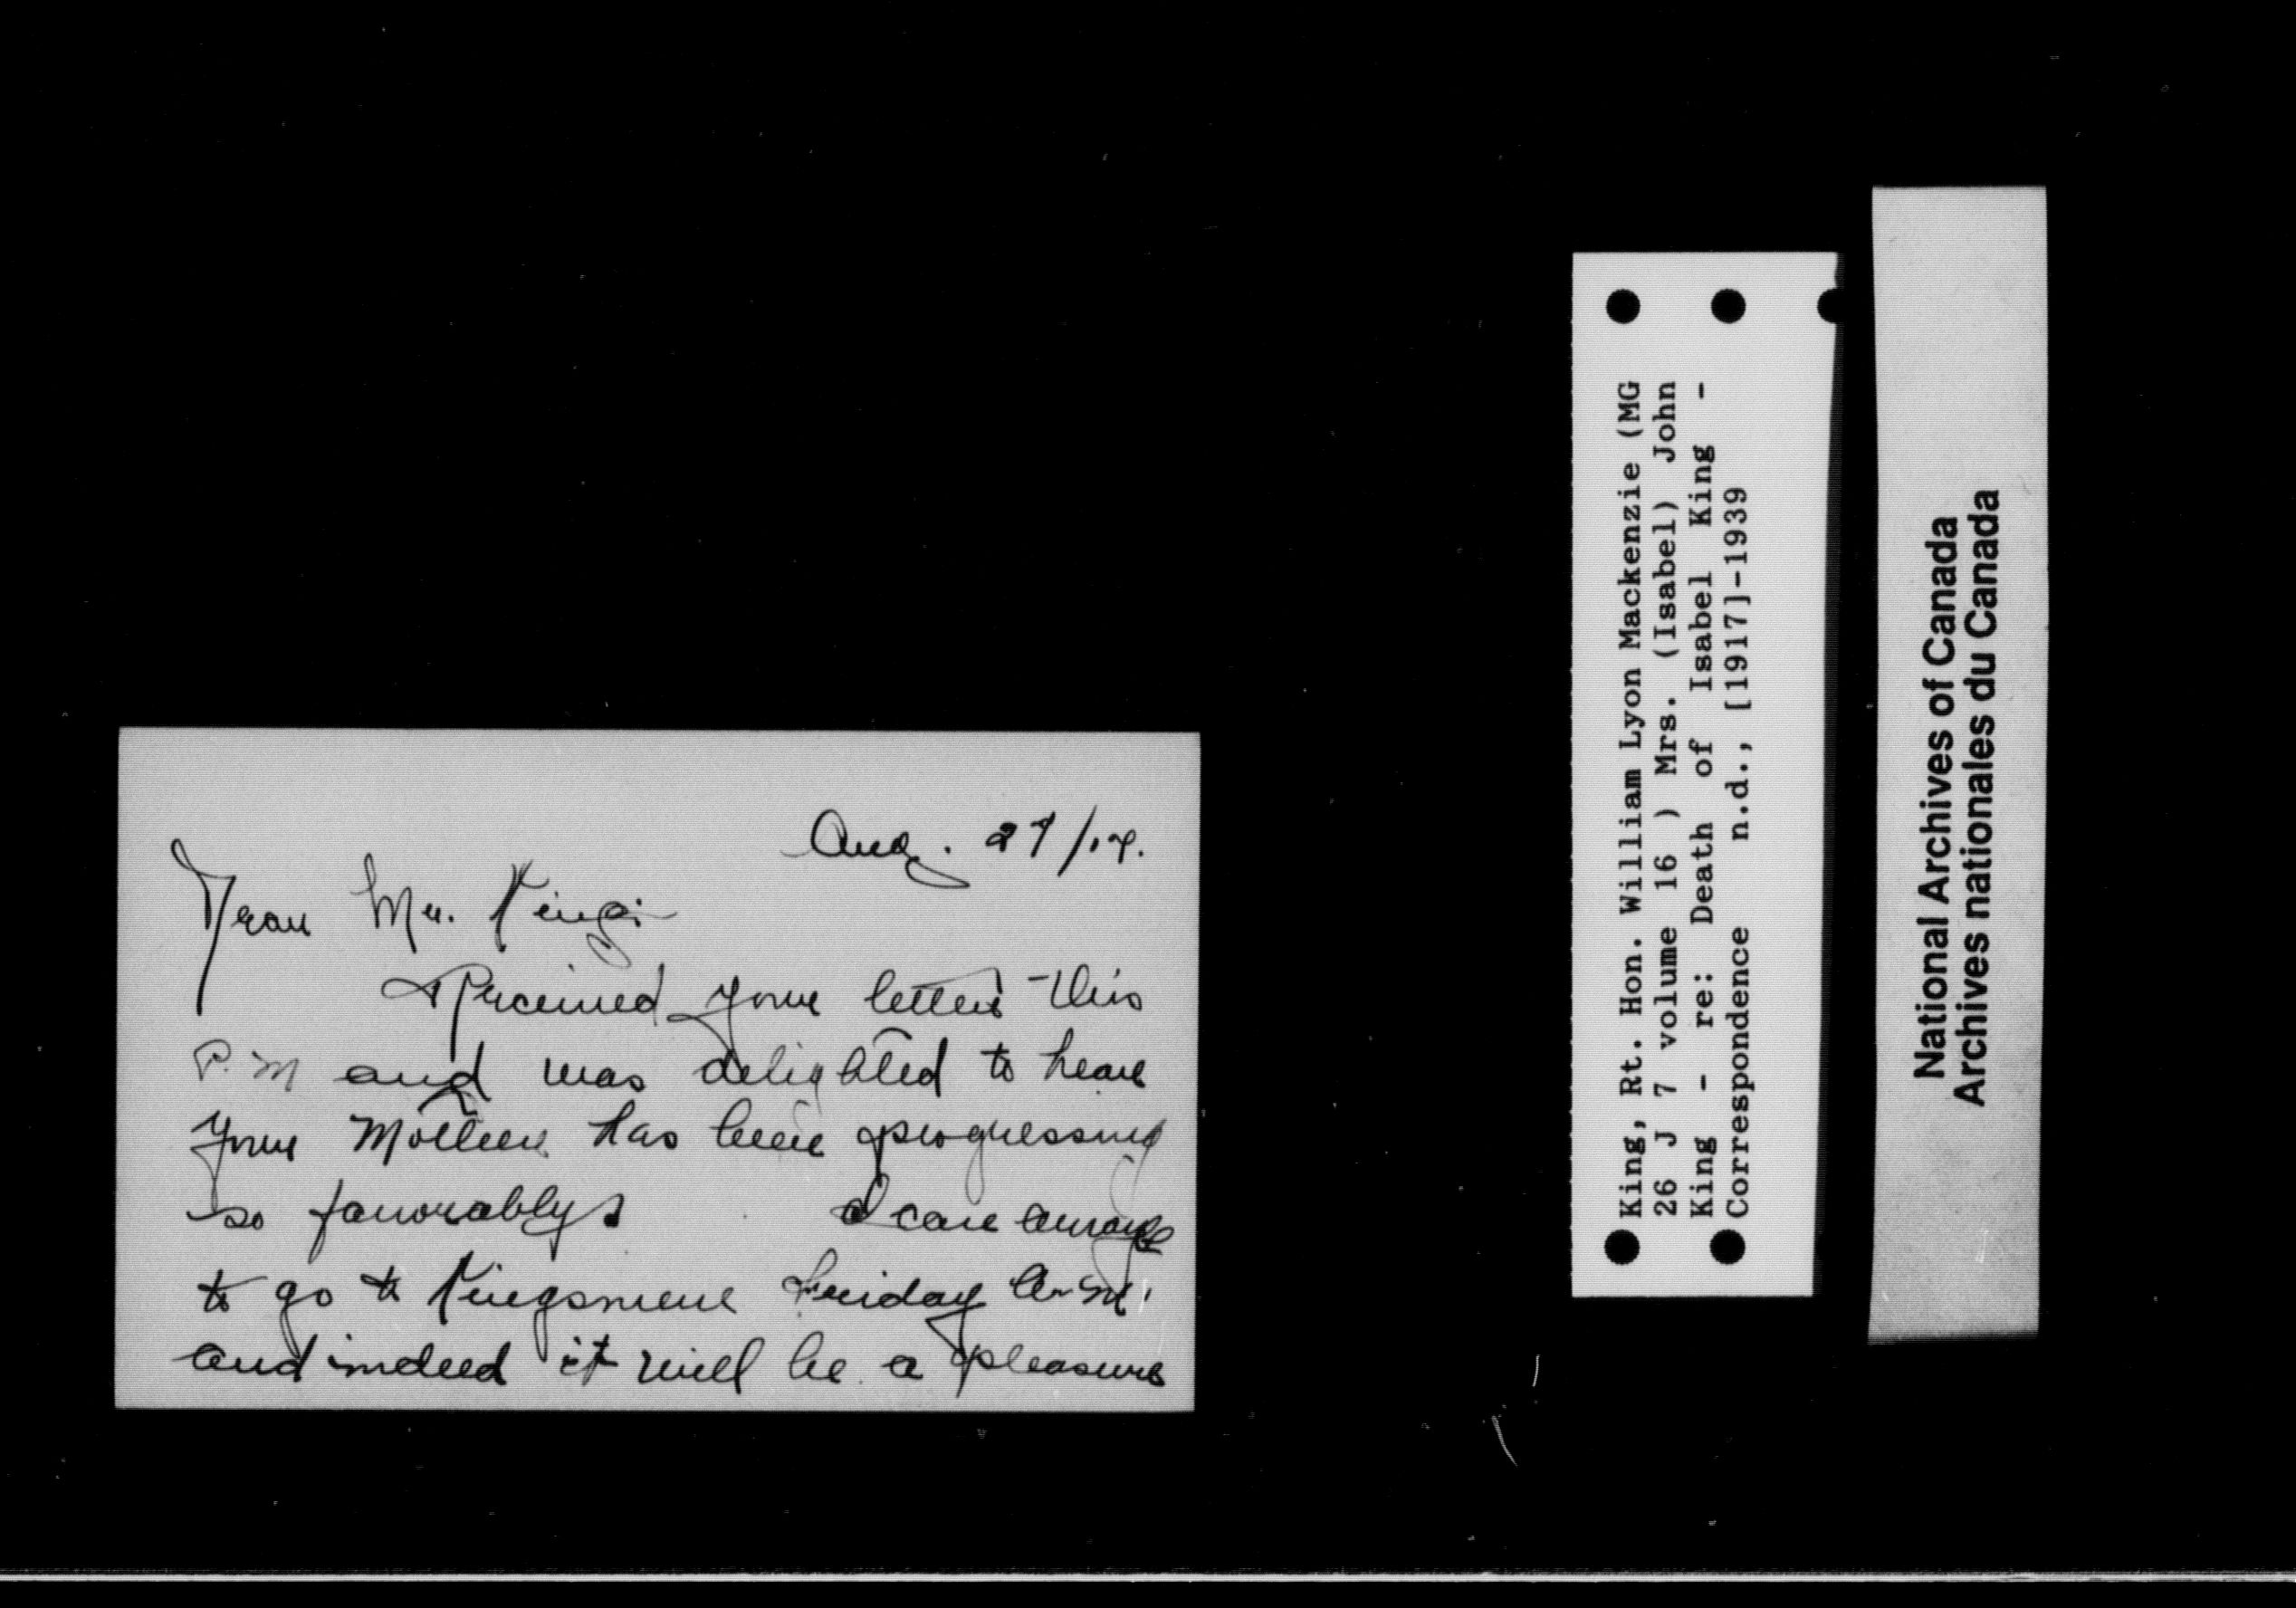 Aug. 27/17.
Dear Mr. King:
Received your letter this
P.M and was delighted to hear
your Mother has been progressing
so favorably. I can arrange
to go to Kingsmere Sunday A.M.
and indeed it will be a pleasure
King, Rt. Hon. William Lyon Mackenzie (MG
26 J 7 volume 16 ) Mrs. (Isabel) John
King - re: Death of Isabel King -
Correspondence n.d., [1917]-1939
National Archives of Canada
Archives nationales du Canada